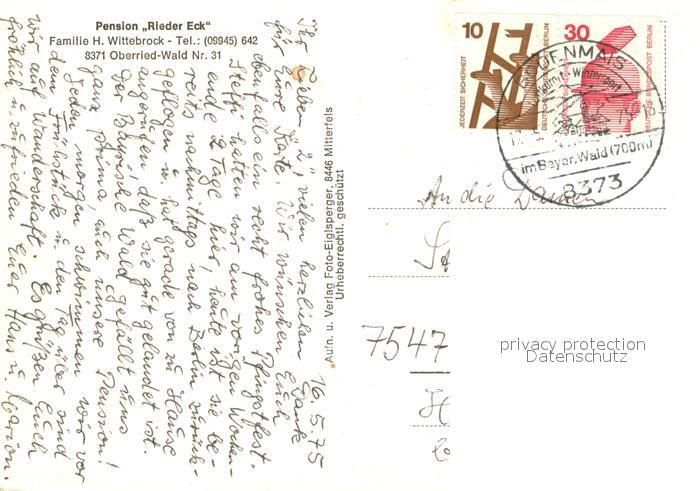 Pension „Rieder Eck"
Familie H. Wittebrock - Tel.: (09945) 642
8371 Oberried-Wald Nr. 31
16.5.75
Ihr Lieben "2", vielen herzlichen Dank
für Eure Karte. Wir wünschen Euch
ebenfalls ein recht frohes Pfingstfest.
Steffi hatten wir am vorigen Wochen-
ende 2 Tage hier, heute ist sie be-
reits nachmittags nach Berlin zurück-
geflogen u. hat gerade von zu Hause
angerufen, daß sie gut gelandet ist.
Der Bayrische Wald gefällt uns
ganz prima, auch unsere Pension!
Jeden morgen schwimmen wir vor
dem Frühstück u. den Tag über sind
wir auf Wanderschaft. Es grüßen Euch
fröhlich u. zufrieden Euer Hans u. Marion.
Aufn. u. Verlag Foto-Eiglsperger, 8446 Mitterfels
Urheberrechtl. geschützt
10
JEDERZEIT SICHERHEIT
DEUTSCHE BUNDESPOST BERLIN
30
DEUTSCHE BUNDESPOST BERLIN
BODENMAIS
im Bayer. Wald (700m)
8373
An die Damen
7547
privacy protection
Datenschutz